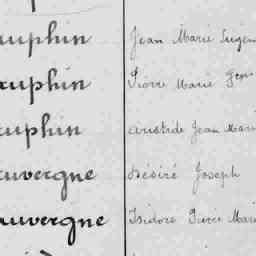 auphin Jean Marie Eugen
auphin Pierre Marie Fçois
auphin Aristide Jean Mari
auvergne Désiré Joseph
auvergne Isidore Pierre Marie